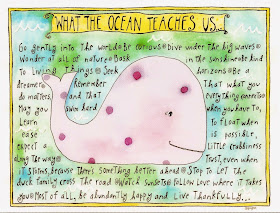 WHAT THE OCEAN TEACHES US...
Go gently into the world Be curious Dive under the big waves
Wonder at all of nature Bask in the sunshine Be kind
To Living Things Seek horizons Be a
dreamer Remember That what you
do matters, and that everything connects
May you swim hard when you have To,
Learn To float when
ease is possible,
expect a Little Crabbiness
along the way Trust, even when
it storms, because There's something better ahead Stop to Let The
duck family cross The road Watch sunsets Follow Love where it Takes
you Most of all, be abundantly happy and Live Thankfully...